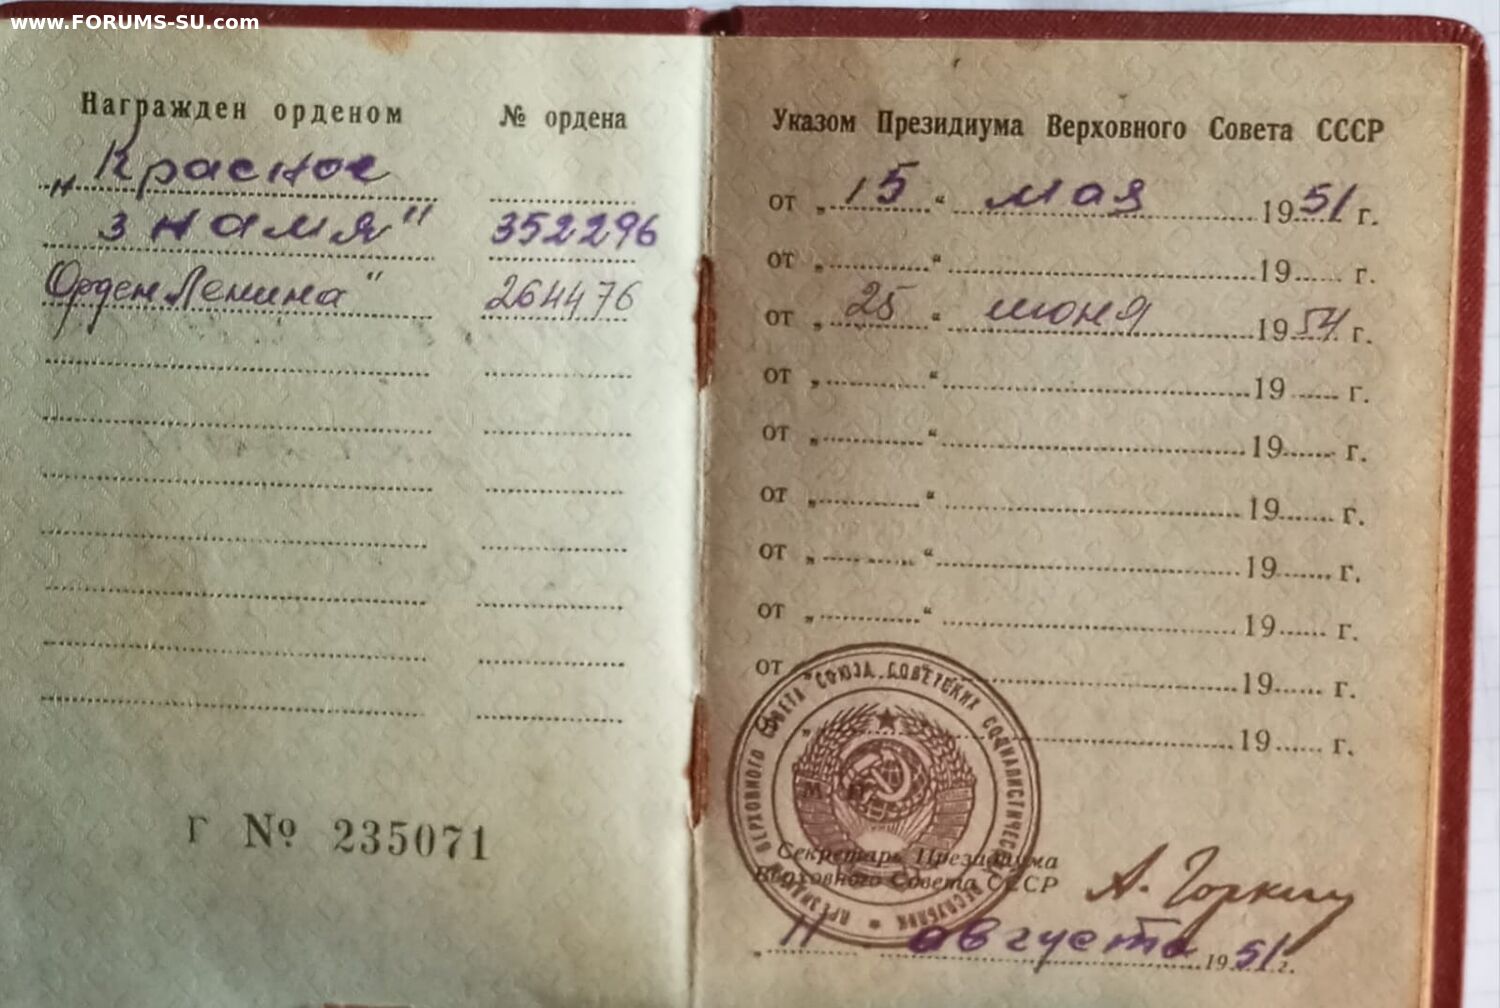 www.FORUMS-SU.com
Награжден орденом № ордена
„Красное
знамя" 352296
Орден Ленина" 264476
г № 235071
Указом Президиума Верховного Совета СССР
от „15" мая 1951 г.
от „ " 19 г.
от „25" июня 1954 г.
от „ " 19 г.
от „ " 19 г.
от „ " 19 г.
от „ " 19 г.
от „ " 19 г.
от 19 г.
„ 19 г.
ПРЕЗИДИУМ ВЕРХОВНОГО СОВЕТА СОЮЗА СОВЕТСКИХ СОЦИАЛИСТИЧЕСКИХ РЕСПУБЛИК
М.
Секретарь Президиума
Верховного Совета СССР А. Горкин
„11 августа 1951 г.